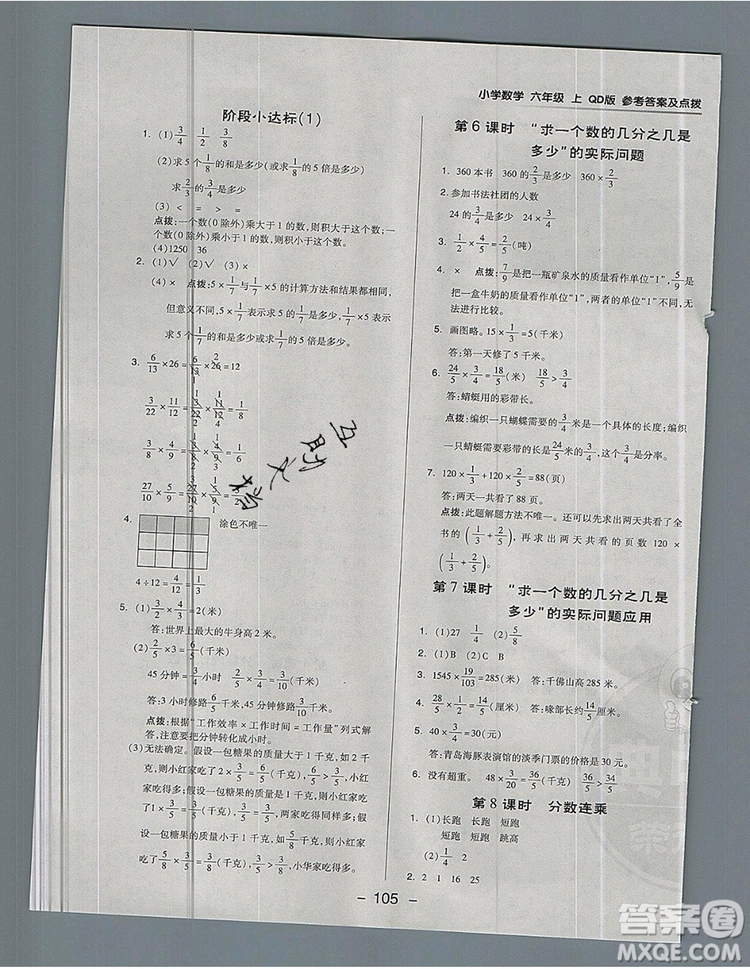 小学数学 六年级 上 QD版 参考答案及点拨
阶段小达标(1)
1. (1) 3/4 1/2 3/8
(2)求5个1/8的和是多少(或求1/8的5倍是多少)
求2/3的3/4是多少
(3)< = > >
点拨:一个数(0除外)乘大于1的数,则积大于这个数;一个数(0除外)乘小于1的数,则积小于这个数。
(4)1250 36
2. (1)√ (2)√ (3)×
(4)× 点拨:5×1/7与1/7×5的计算方法和结果相同,
但意义不同,5×1/7表示求5的1/7是多少,1/7×5表示
求5个1/7的和是多少(或求1/7的5倍是多少)。
3. 6/13×26=
3/22×11/12=
3/8×4/9=
27/10×5/9=
4. 涂色不唯一
4÷12=4/12=1/3
5. (1)
=2(米)
答:世界上最大的牛身高2米。
(2)2/5×3=6/5(千米)
45分钟=3/4小时 2/5×3/4=3/10(千米)
答:3小时修路6/5千米,45分钟修路3/10千米。
点拨:根据“工作效率×工作时间=工作量”列式解答。注意要把45分钟转化成小时。
(3)无法确定。假设一包糖果的质量大于1千克,如2千克,
小红家吃了2×3/5=6/5(千克),6/5>3/5,小红家吃得多。
假设一包糖果的质量等于1千克,小红家吃了1×3/5=
3/5(千克),3/5=3/5,两家吃得同样多。假设一包糖果
的质量小于1千克,如1/2千克,小红家
吃了1/2×3/5=3/10(千克),3/10<3/5,小华家吃得多。
第6课时 “求一个数的几分之几是
多少”的实际问题
1. 360本书 360的2/3是多少 360×2/3
2. 参加书法社团的人数
24的3/4是多少 24×3/4
3. 1/2×4/5=2/5(吨)
4. × 点拨:7/9是把一瓶矿泉水的质量看作单位“1”,5/9
是把一盒牛奶的质量看作单位“1”,两者的单位“1”不同,无法进行比较。
5. 画图略。15×1/3=5(千米)
答:第一天修了5千米。
6. 24/5×3/4=18/5(米) 18/5<24/5
答:蜻蜓用的彩带长。
点拨:编织一只蝴蝶需要的3/4米是一个具体的长度;编织
一只蜻蜓需要彩带的长是24/5米的3/4,这里的3/4是分率。
7. 120×1/3+120×2/5=88(页)
答:两天一共看了88页。
点拨:此题解题方法不唯一。还可以先求出两天共看了全书
的(1/3+2/5),再求出两天共看的页数120×
(1/3+2/5)=88(页)。
第7课时 “求一个数的几分之几是
多少”的实际问题应用
1. (1)27 1/4 (2)5/8
2. (1)B (2)C B
3. 1545×19/103=285(米) 答:千佛山高285米。
4. 28/5×1/2=14/5(米) 答:喙部长约14/5米。
5. 40×3/4=30(元)
答:青岛海豚表演馆的淡季门票的价格是30元。
6. 没有超重。 48×3/20=36/5(千克) 36/5>34/5
第8课时 分数连乘
1. (1)长跑 长跑 短跑
短跑 短跑 跳高
(2)1/4 2
2. 2 1 16 25
- 105 -
互助文稿
答案圈
MXQE.COM